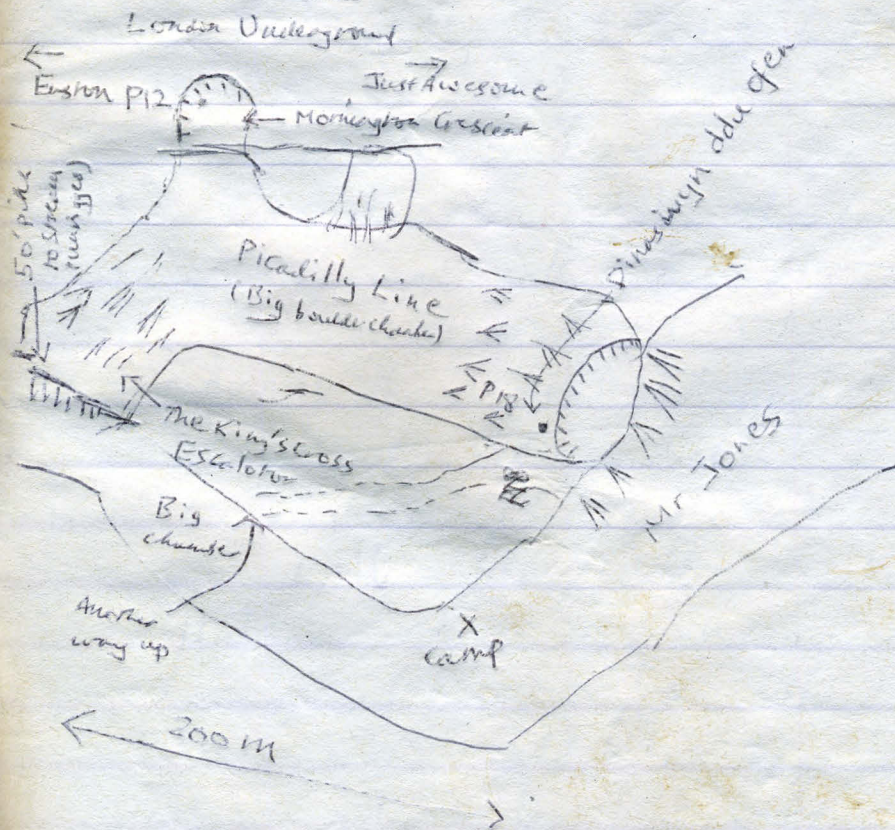 London Underground
Euston P12
Just Awesome
Mornington Crescent
50' pike
to stream
Picadilly Line
(Big boulder chamber)
Dinasimyn ddu ofen
P18
The King's Cross
Escalator
Mr Jones
Big
chamber
Another
way up
camp
200m